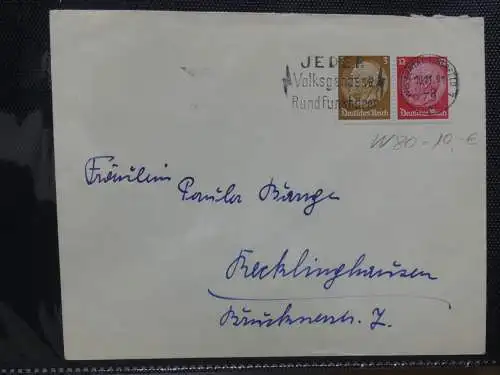 JEDER
Volksgenosse
Rundfunkhörer
3
Deutsches Reich
12
Deutsches Reich
W80 - 10,- €
Fräulein Paula Bange
Recklinghausen
Brucknerstr. 7.